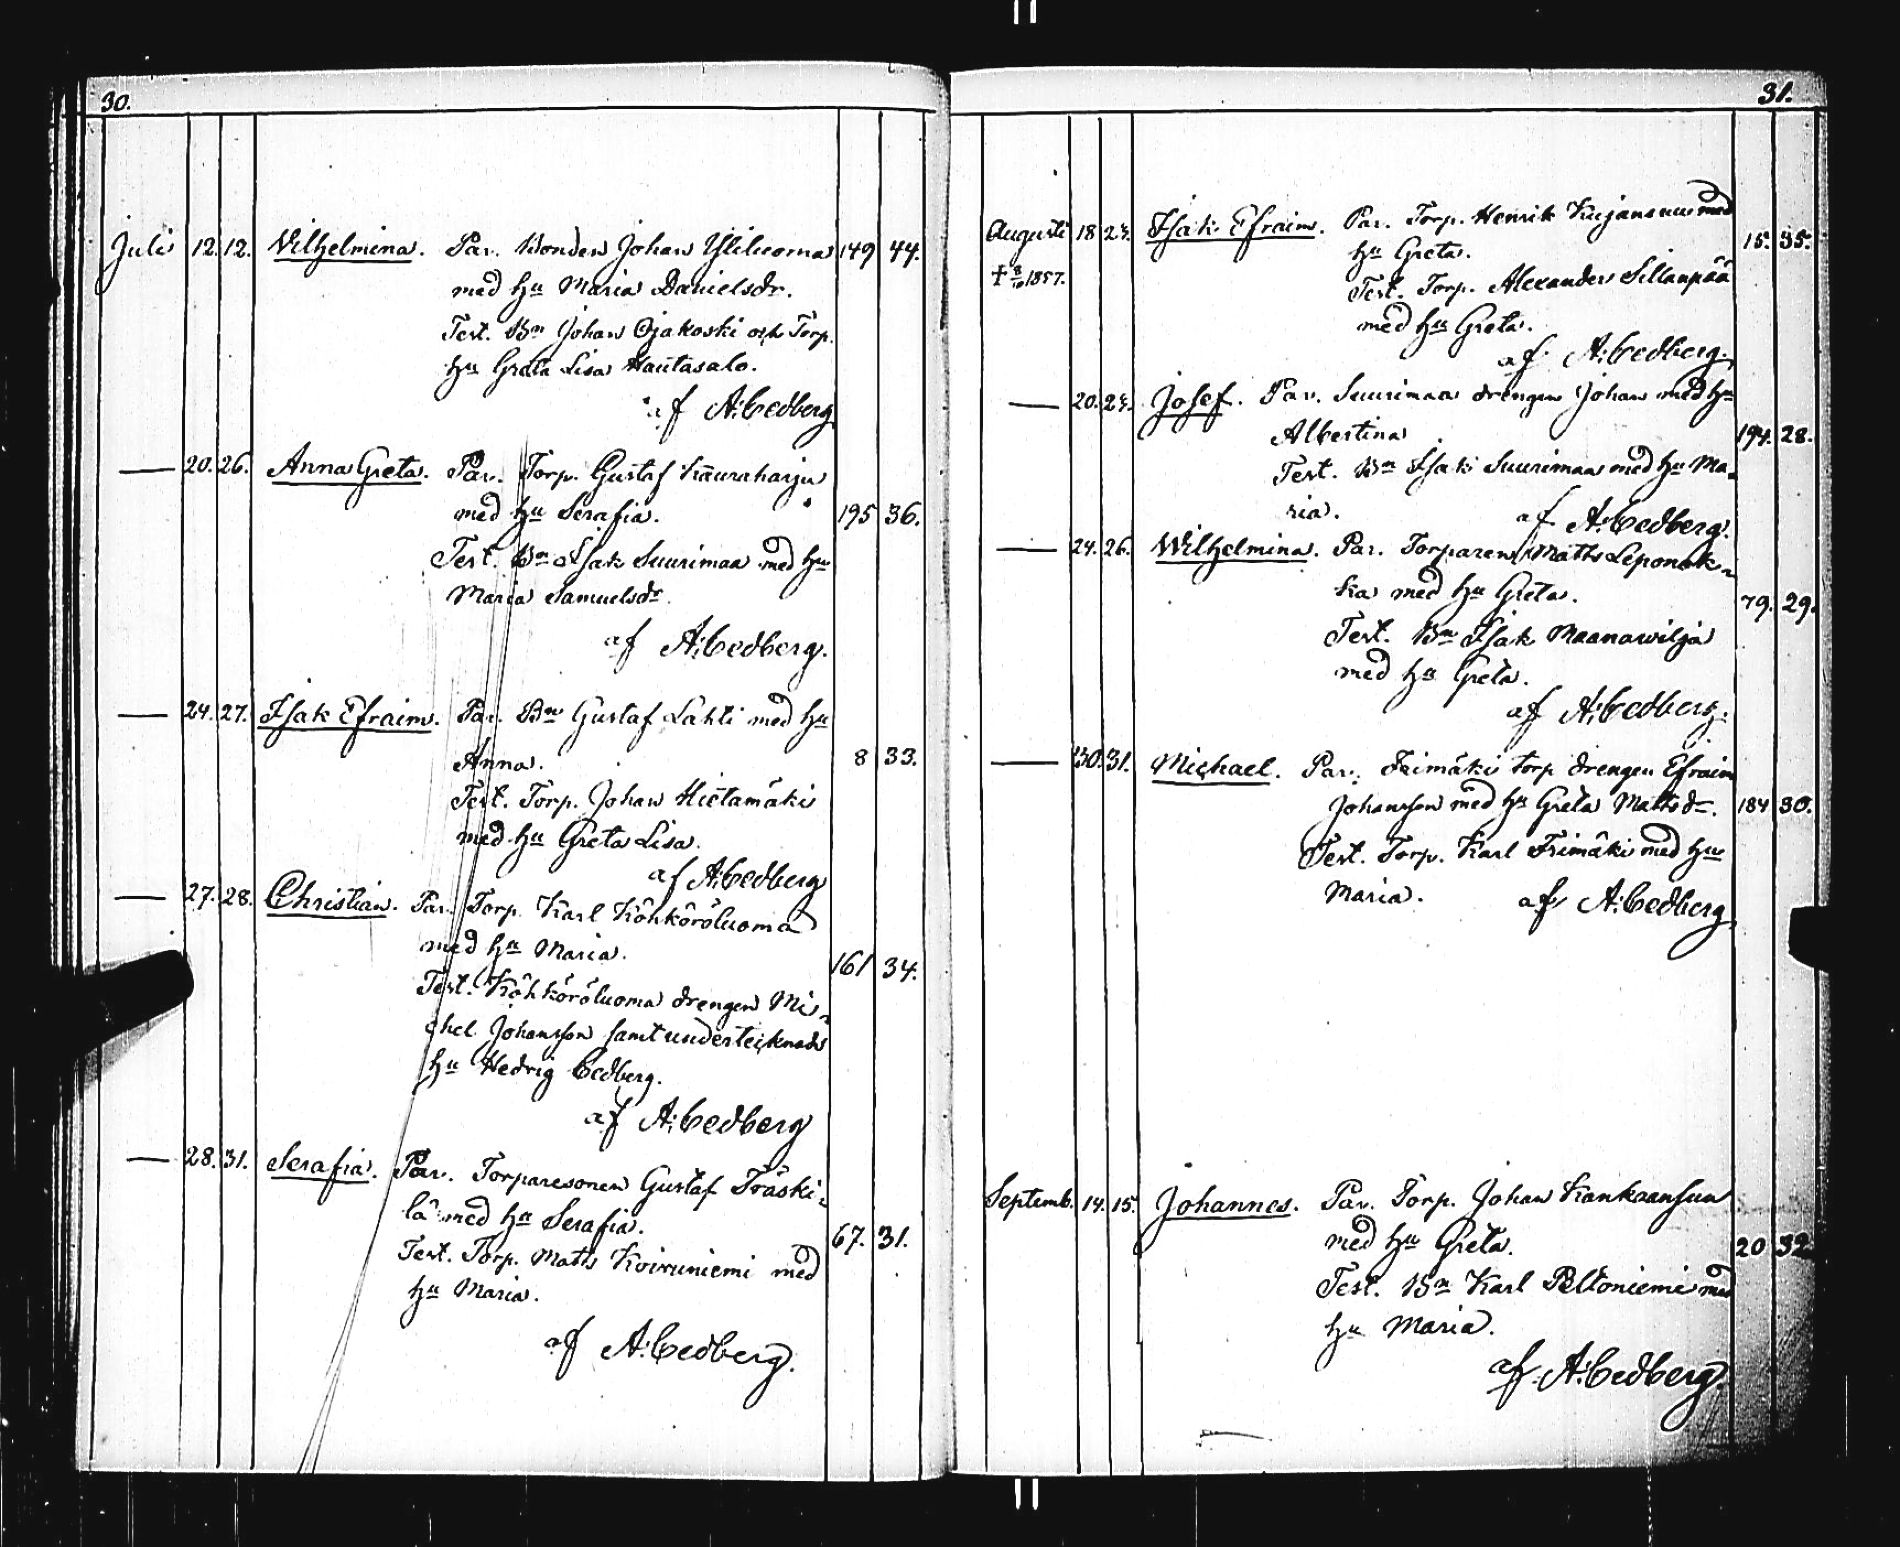 30.
Juli 12. 12. Wilhelmina. Par. Bonden Johan Yliluoma 149 44.
med hu Maria Danielsdr.
Test. Bn Johan Ojakoski och Torp.
hu Greta Lisa Hautasalo.
af A: Cedberg
— 20. 26. Anna Greta. Par. Torp. Gustaf Kauraharju
med hu Serafia. 195 36.
Test. Bn Isak Suurimaa med hu
Maria Samuelsdr.
af A: Cedberg.
— 24. 27. Isak Efraim. Par. Bn Gustaf Lahti med hu
Anna. 8 33.
Test. Torp. Johan Hietamäki
med hu Greta Lisa.
af A: Cedberg
— 27. 28. Christian. Par. Torp. Karl Köhköröluoma
med hu Maria. 161 34.
Test. Köhköröluoma drengen Mi-
chel Johansson samt undertecknads
hu Hedvig Cedberg.
af A: Cedberg
— 28. 31. Serafia. Par. Torparesonen Gustaf Träski-
lä med hu Serafia. 67. 31.
Test. Torp. Matts Koivuniemi med
hu Maria.
af A: Cedberg.
31.
Augusti 18 23. Isak Efraim. Par. Torp. Henrik Kujansuu med
hu Greta. 15. 35.
† 8/10 1857.
Test. Torp. Alexander Sillanpää
med hu Greta.
af A: Cedberg.
— 20. 23. Josef. Par. Suurimaa drengen Johan med hu
Albertina 194. 28.
Test. Bn Isak Suurimaa med hu Ma-
ria.
af A: Cedberg.
— 24. 26. Wilhelmina. Par. Torparen Matts Leponok-
ka med hu Greta. 79. 29.
Test. Bn Isak Maanawilja
med hu Greta.
af A: Cedberg.
— 30. 31. Michael. Par. torp drengen Efraim
Johansson med hu Greta Mattsdr. 184 30.
Test. Torp. Karl med hu
Maria. af A: Cedberg
Septemb. 14. 15. Johannes. Par. Torp. Johan Kankaansuu
med hu Greta. 20 32
Test. Bn Karl Peltoniemi med
hu Maria.
af A: Cedberg.